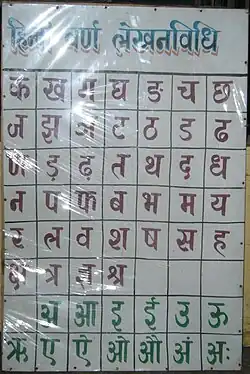 हिन्दी वर्ण लेखनविधि
क ख ग घ ङ च छ
ज झ ञ ट ठ ड ढ
ण ड़ ढ़ त थ द ध
न प फ ब भ म य
र ल व श ष स ह
क्ष त्र ज्ञ श्र
अ आ इ ई उ ऊ
ऋ ए ऐ ओ औ अं अः